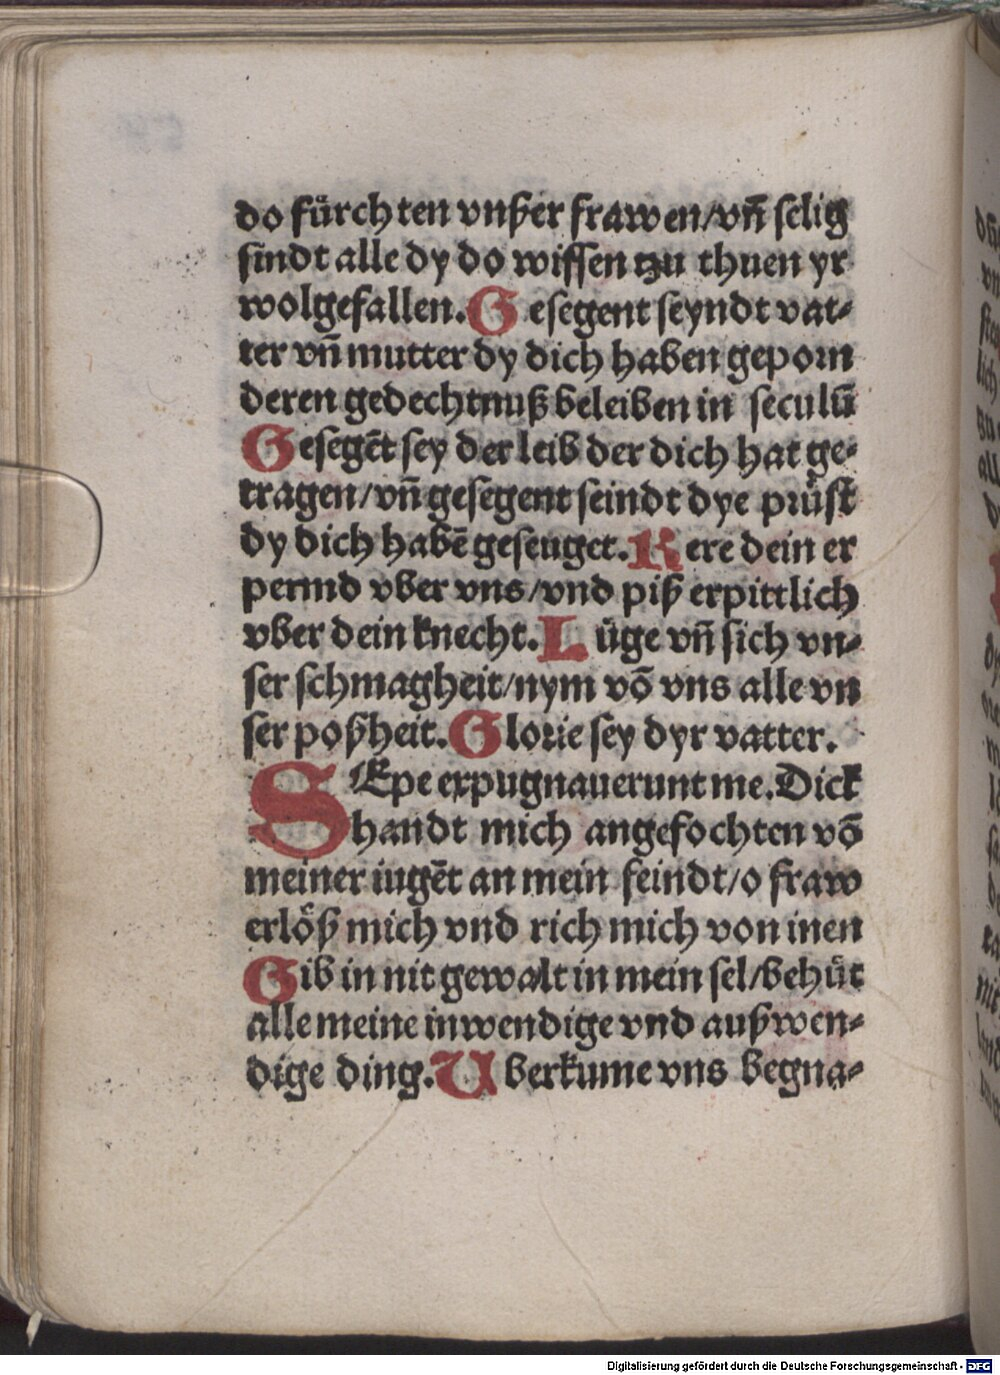 do fürchten vnßer frawen/vn̄ selig
sindt alle dy do wissen tzu thuen yr
wolgefallen. Gesegent seyndt vat⸗
ter vn̄ mutter dy dich haben geporn
deren gedechtnuß beleiben in seculū
Gesegēt sey der leib der dich hat ge⸗
tragen/vn̄ gesegent seindt dye prüst
dy dich habē geseuget. Kere dein er
permd vber vns/vnd piß erpittlich
vber dein knecht. Lüge vn̄ sich vn⸗
ser schmagheit/nym vō vns alle vn
ser poßheit. Glorie sey dyr vatter.
SEpe expugnauerunt me. Dick
handt mich angefochten vō
meiner iugēt an mein feindt/o fraw
erlöß mich vnd rich mich von inen
Gib in nit gewalt in mein sel/behüt
alle meine inwendige vnd außwen⸗
dige ding. Uberkume vns begna⸗
Digitalisierung gefördert durch die Deutsche Forschungsgemeinschaft - DFG